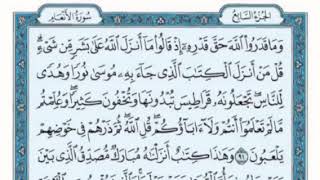 الجزء السابع سورة الأنعام
وَمَا قَدَرُوا۟ ٱللَّهَ حَقَّ قَدْرِهِۦٓ إِذْ قَالُوا۟ مَآ أَنزَلَ ٱللَّهُ عَلَىٰ بَشَرٍ مِّن شَىْءٍ ۗ
قُلْ مَنْ أَنزَلَ ٱلْكِتَٰبَ ٱلَّذِى جَآءَ بِهِۦ مُوسَىٰ نُورًا وَهُدًى
لِّلنَّاسِ ۖ تَجْعَلُونَهُۥ قَرَاطِيسَ تُبْدُونَهَا وَتُخْفُونَ كَثِيرًا ۖ وَعُلِّمْتُم
مَّا لَمْ تَعْلَمُوٓا۟ أَنتُمْ وَلَآ ءَابَآؤُكُمْ ۖ قُلِ ٱللَّهُ ۖ ثُمَّ ذَرْهُمْ فِى خَوْضِهِمْ
يَلْعَبُونَ ٩١ وَهَٰذَا كِتَٰبٌ أَنزَلْنَٰهُ مُبَارَكٌ مُّصَدِّقُ ٱلَّذِى بَيْنَ